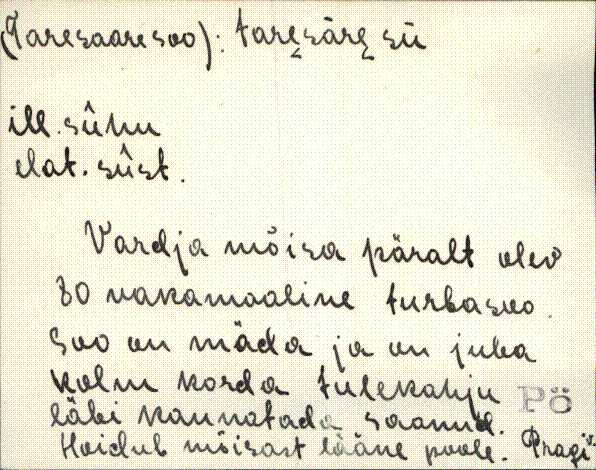 (Taresaare soo): tarẹsārẹ sū
ill. sûhu
elat. sûst.
Vardja mõisa päralt olev
80 vakamaaline turbasoo.
Soo on mäda ja on juba
kolm korda tulekahju
Pö
läbi kannatada saanud.
Hoidub mõisast lääne poole.